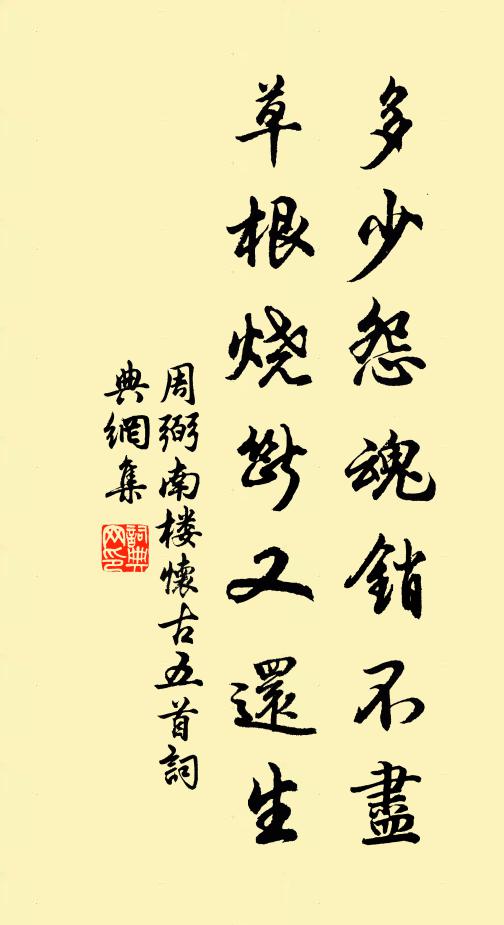 多少怨魂銷不盡
草根烧斷又還生
周弼南楼懷古五首詞
典網集
詞典网印